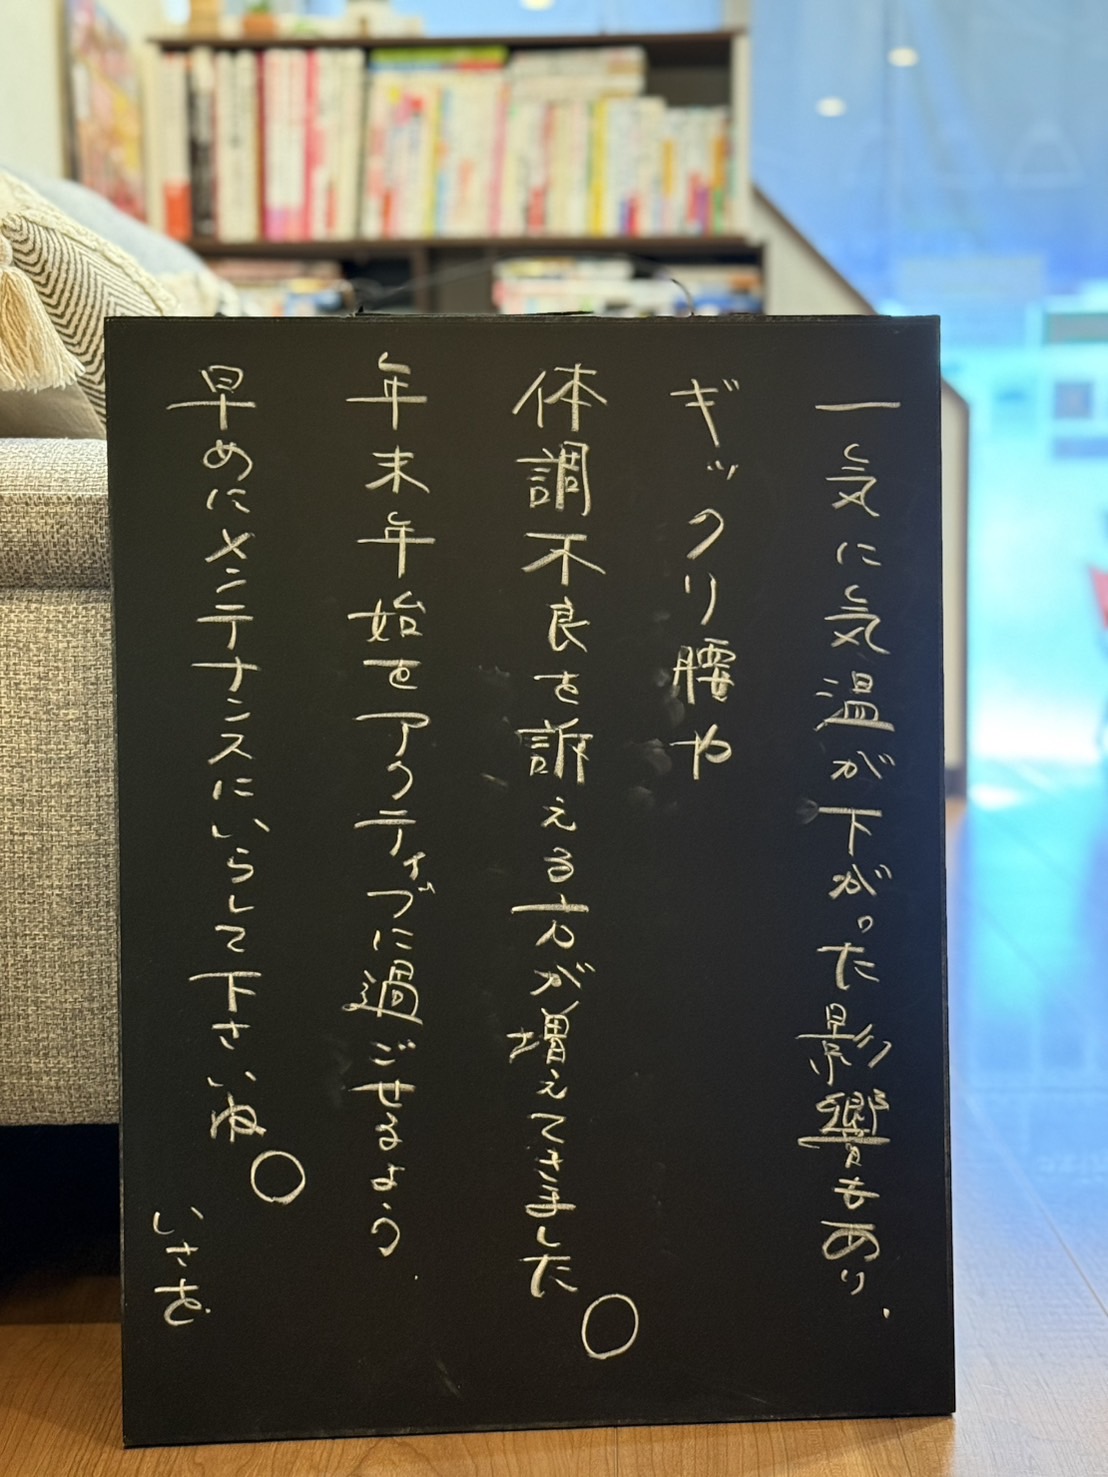 一気に気温が下がった影響もあり、
ギックリ腰や
体調不良を訴える方が増えてきました。
年末年始をアクティブに過ごせるよう、
早めにメンテナンスにいらして下さいね。
いさを